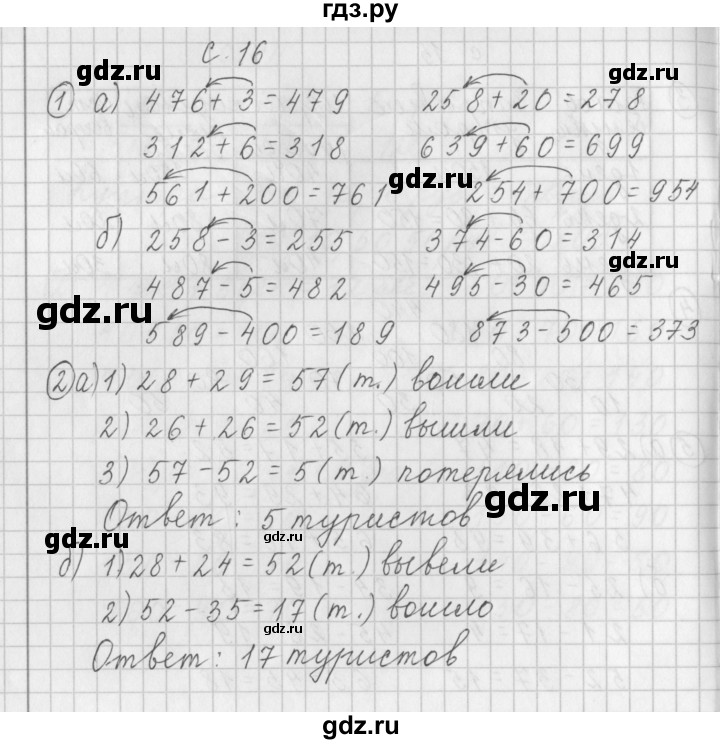 гдз.ру
с. 16
gdz.ru gdz.ru
① а) 476 + 3 = 479 258 + 20 = 278
312 + 6 = 318 639 + 60 = 699
gdz.ru
561 + 200 = 761 254 + 700 = 954
б) 258 - 3 = 255 374 - 60 = 314
gdz.ru
487 - 5 = 482 495 - 30 = 465
gdz.ru
589 - 400 = 189 873 - 500 = 373
② а) 1) 28 + 29 = 57 (т.) вошли
2) 26 + 26 = 52 (т.) вышли
3) 57 - 52 = 5 (т.) потерялись
gdz.ru
Ответ: 5 туристов
gdz.ru gdz.ru
б) 1) 28 + 24 = 52 (т.) вывели
2) 52 - 35 = 17 (т.) вошло
gdz.ru
Ответ: 17 туристов
gdz.ru